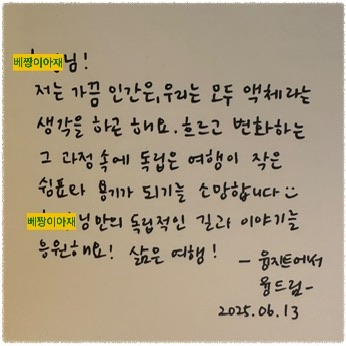 베짱이아재님!
저는 가끔 인간은, 우리는 모두 액체라는
생각을 하곤 해요. 흐르고 변화하는
그 과정 속에 독립은 여행이 작은
쉼표와 용기가 되기를 소망합니다
베짱이아재님만의 독립적인 길과 이야기를
응원해요! 삶은 여행!
- 움지트에서
용드림 -
2025.06.13